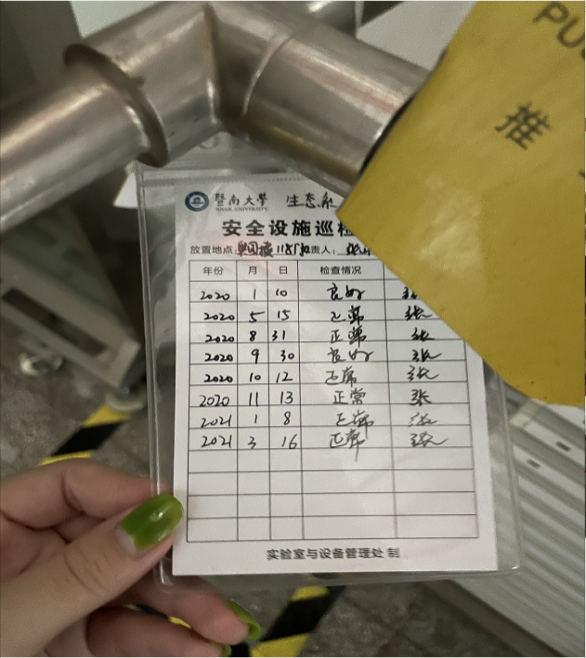 PU
推
暨南大學 生态系
JINAN UNIVERSITY
安全设施巡检
放置地点: 118 责人: 张
年份 月 日 检查情况
2020 1 10 良好 张
2020 5 15 正常 张
2020 8 31 正常 张
2020 9 30 良好 张
2020 10 12 正常 张
2020 11 13 正常 张
2021 1 8 正常 张
2021 3 16 正常 张
实验室与设备管理处 制